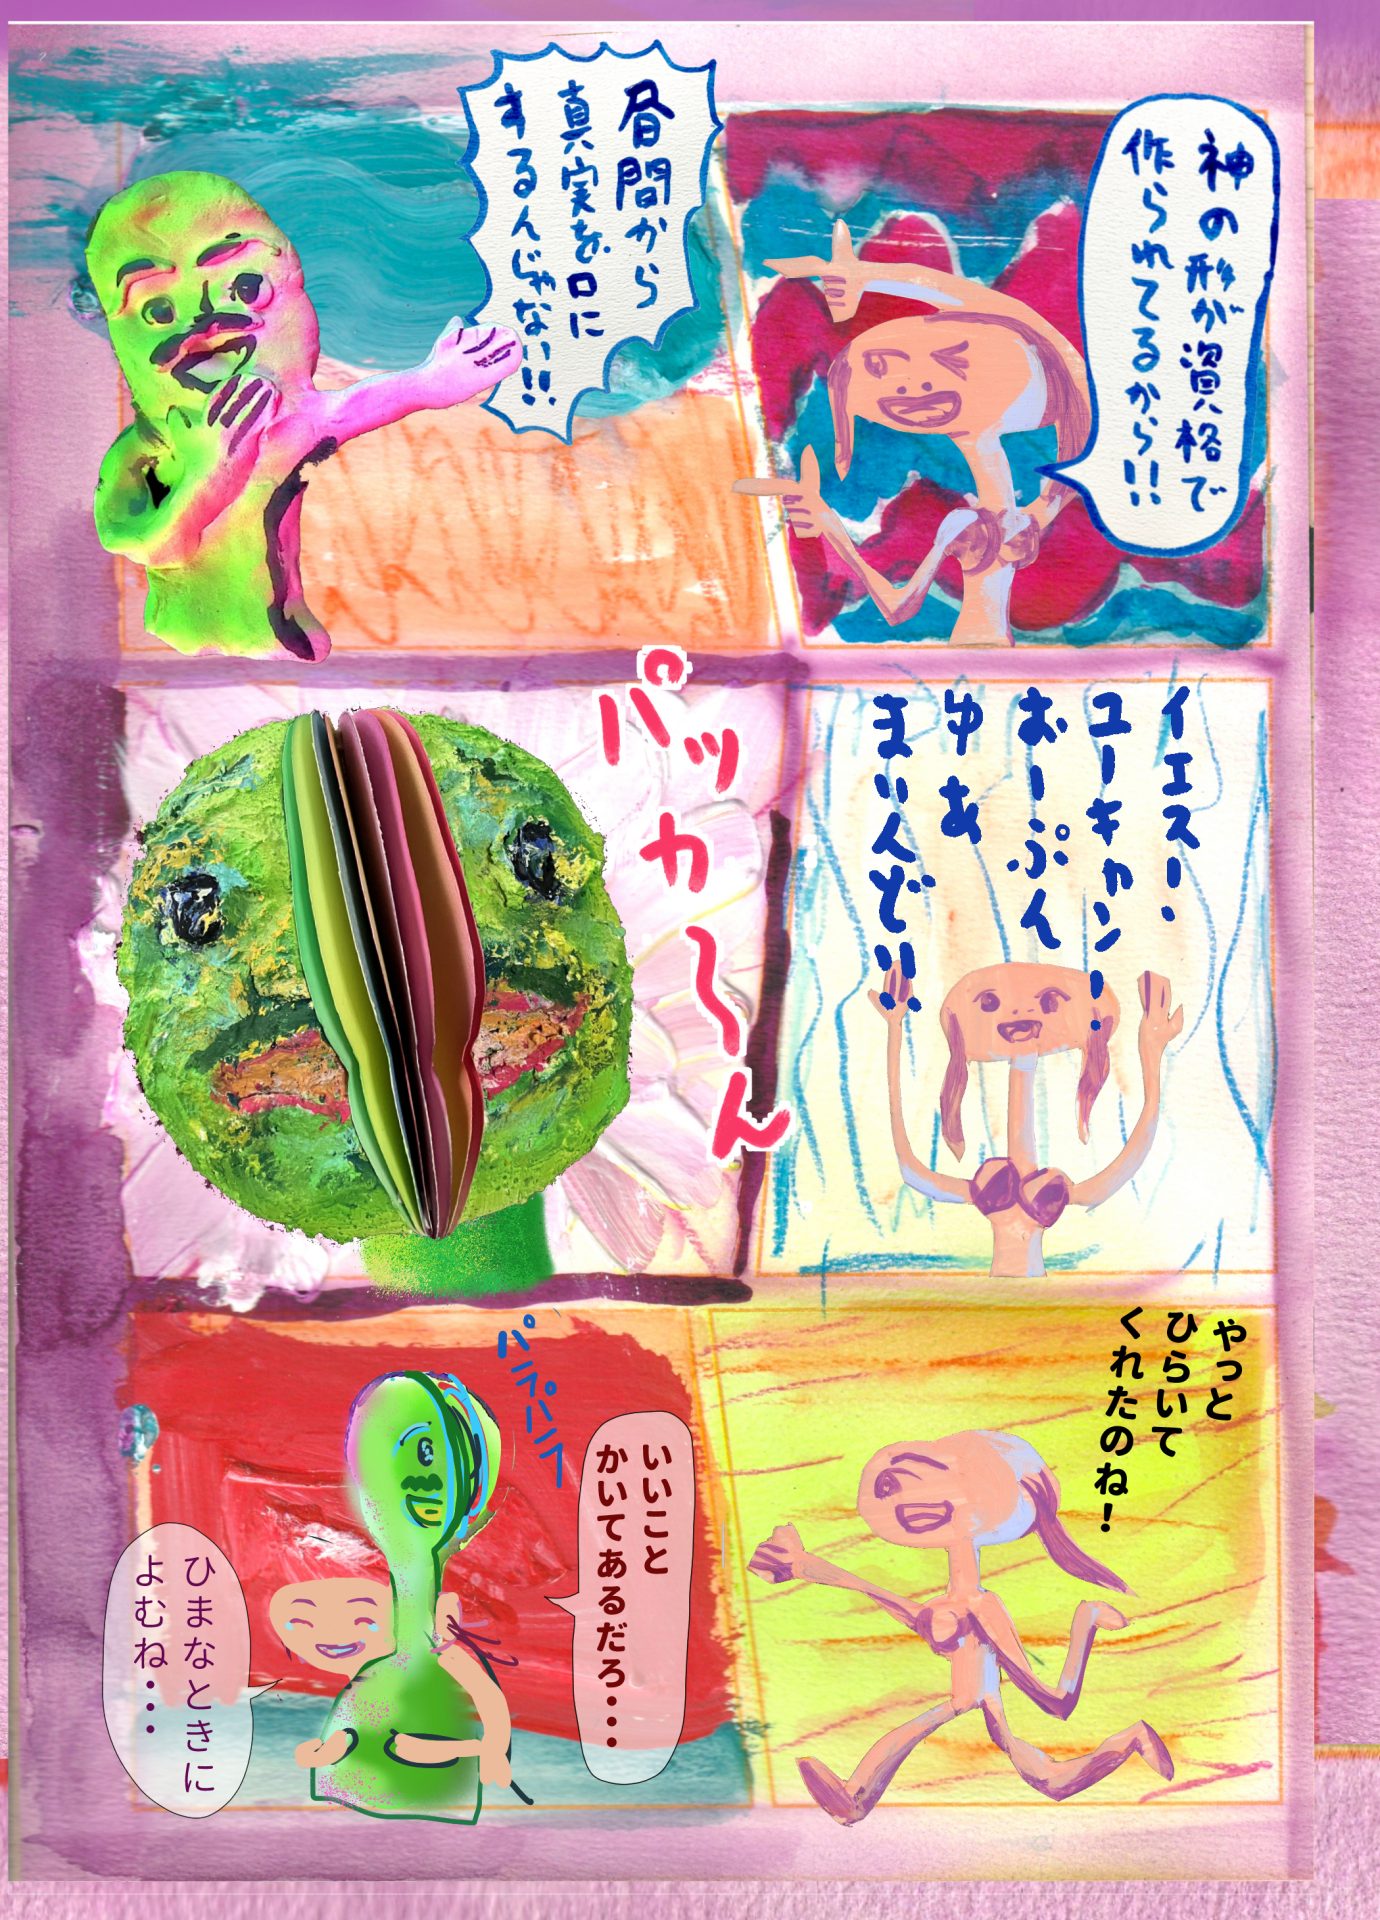 神の形が資格で
作られてるから!!
昼間から
真実を口に
するんじゃない!!
イエスー.
ユーキャンー.
おーぷん
ゆあ
まいんどぃ!!
パッカ〜ん
やっと
ひらいて
くれたのね!
パラパラ
いいこと
かいてあるだろ・・・
ひまなときに
よむね・・・